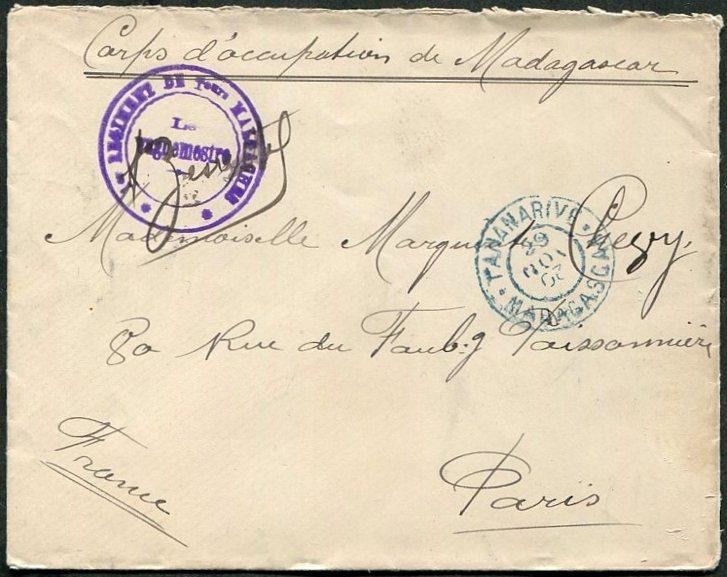 Corps d'occupation de Madagascar
REGIMENT DE Tours MALGACHES
Le
Vaguemestre
TANANARIVE
MADAGASCAR
Mademoiselle Marguerite
80 Rue du Faubg Poissonnière
Paris
France